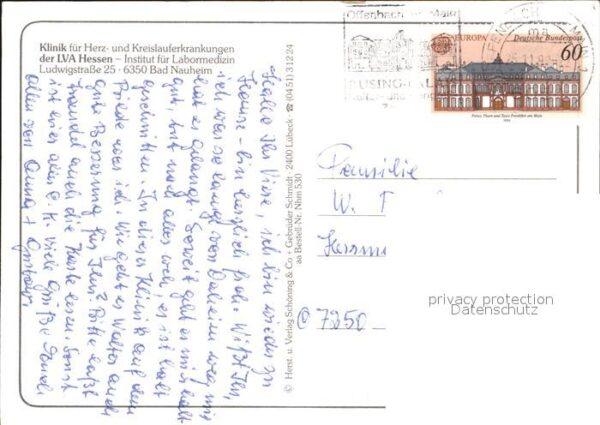 Klinik für Herz- und Kreislauferkrankungen
der LVA Hessen – Institut für Labormedizin
Ludwigstraße 25 · 6350 Bad Nauheim
Offenbach am Main
BÜSING-PALAIS
EUROPA Deutsche Bundespost
60
Palais Thurn und Taxis Frankfurt am Main
1990
© Herst. u. Verlag Schöning & Co + Gebrüder Schmidt · 2400 Lübeck · ☎ (04 51) 3 12 24
aa Bestell-Nr. Nhm 530
Hallo Ihr Viere, ich bin wieder zu
Hause - bin herzlich froh. Wißt Ihr,
ich war so lange von Daheim weg, mir
hat es gelangt. Soweit geht es mir halt
gut, tut noch alles weh, es ist halt
geschnitten. In dieser Klinik auf dem
Bilde war ich. Wie geht es Walter auch
gute Besserung für Ihn? Bitte laßt
auch die Karte lesen. Sonst
ist hier alles O.K. Viele Grüße
allen von Anna +
Familie
W.
7250
privacy protection
Datenschutz